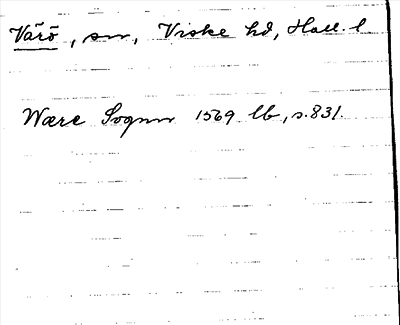 Värö, sn, Viske hd, Hall. l
Wære Sognn 1569 lb, s. 831.